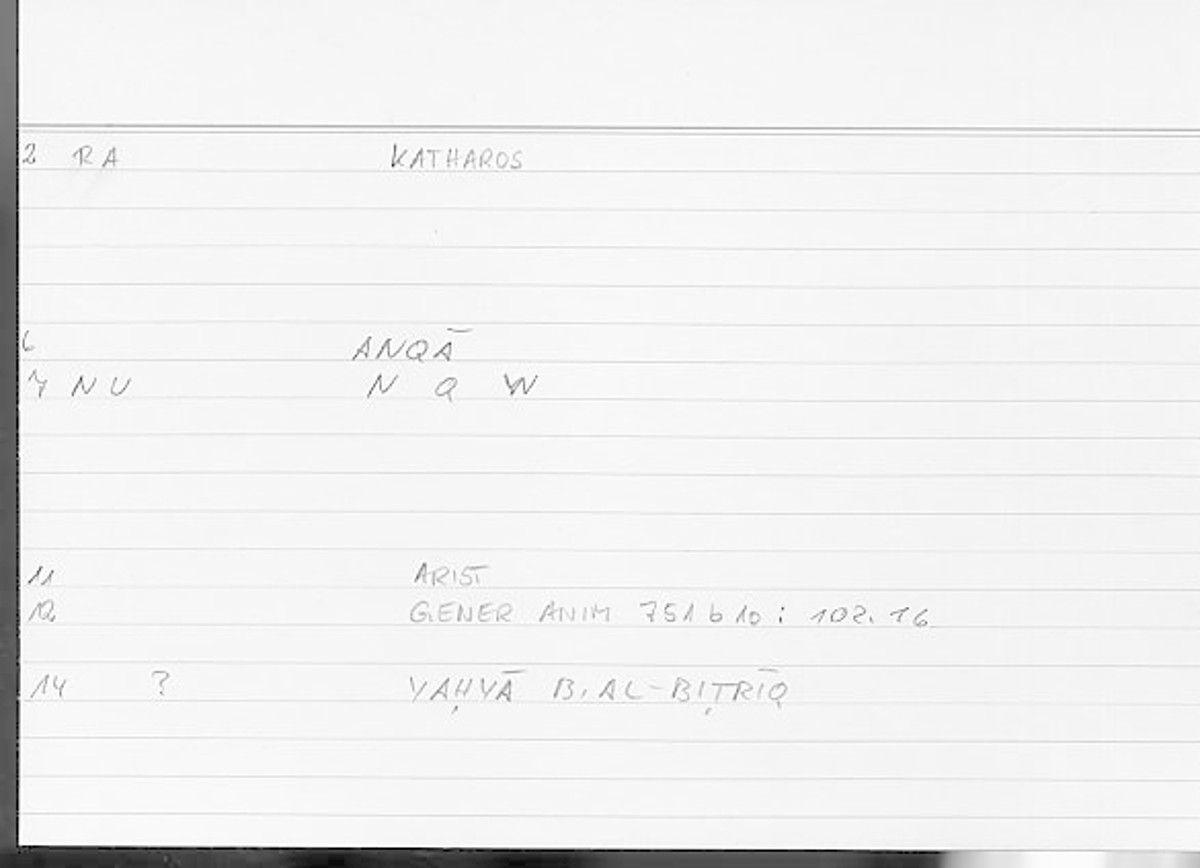 2 RA KATHAROS
6 ANQĀ
7 NU N Q W
11 ARIST
12 GENER ANIM 751 b 10 : 102. 16
14 ? YAḤYĀ B. AL-BIṬRĪQ